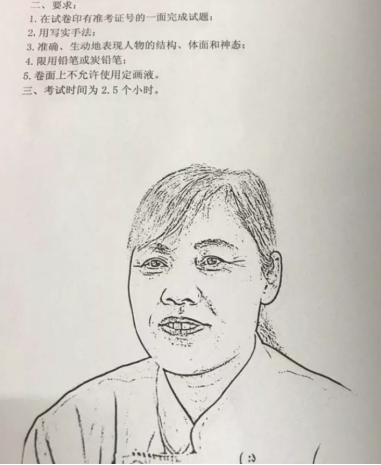 二、要求:
1.在试卷印有准考证号的一面完成试题;
2.用写实手法;
3.准确、生动地表现人物的结构、体面和神态;
4.限用铅笔或炭铅笔;
5.卷面上不允许使用定画液。
三、考试时间为 2.5 个小时。